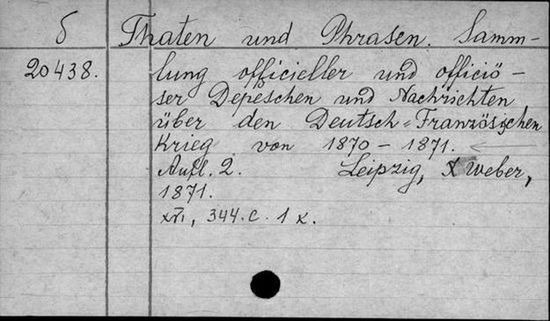 б Thaten und Phrasen. Samm-
20438. lung officieller und officiö-
ser Depeschen und Nachrichten
über den Deutsch-Französischen
Krieg von 1870-1871.
Aufl. 2. Leipzig, Weber,
1871.
XVI, 344. c. 1 к.